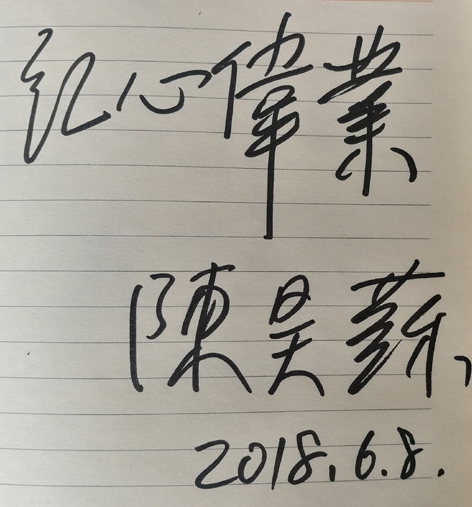 红心偉業
陳昊蘇
2018.6.8.